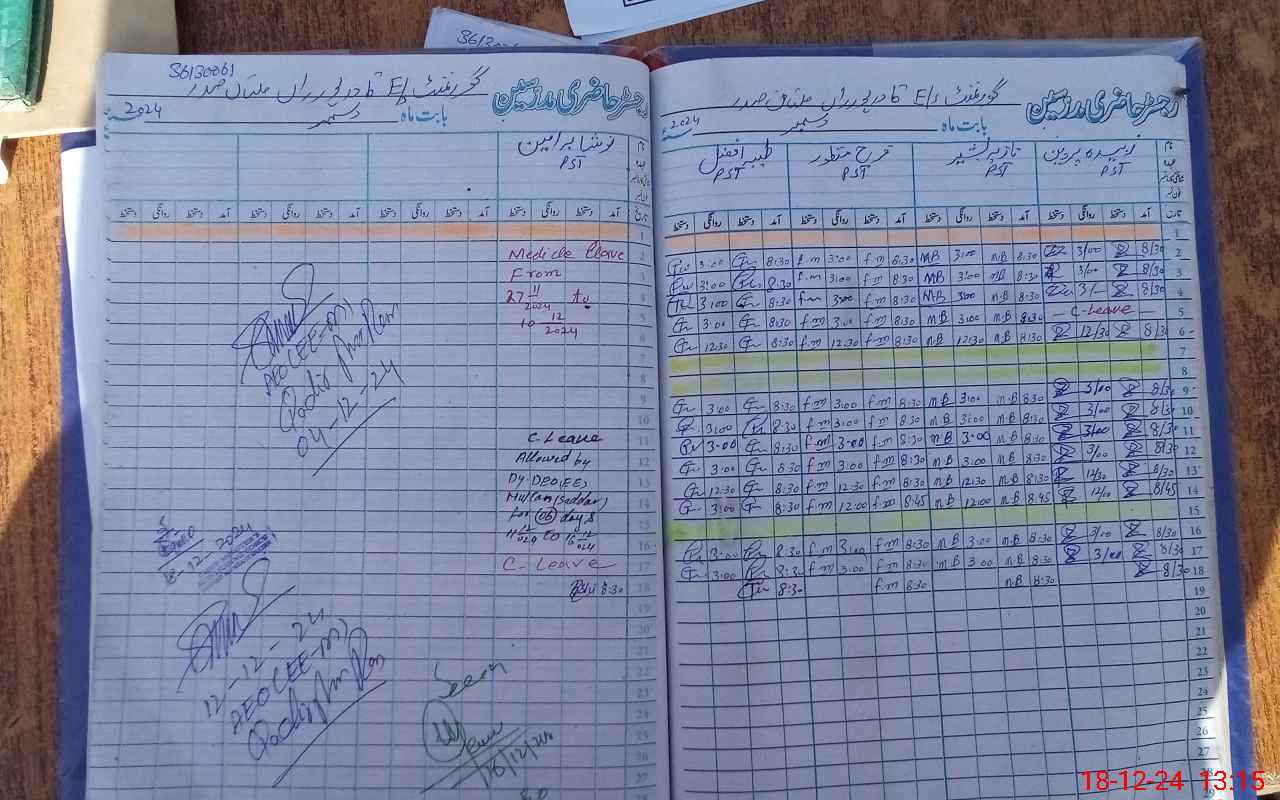 36130061
3613006
رجسٹر حاضری مدرسین
گورنمنٹ E/S
ملتان صدر
بابت ماہ دسمبر 2024
زبیدہ پروین
PST
نازیہ بشیر
PST
فرح منظور
PST
طیبہ افضل
PST
تاریخ آمد دستخط روانگی دستخط آمد دستخط روانگی دستخط آمد دستخط روانگی دستخط آمد دستخط روانگی دستخط
1
2 8/30 3/00 8:30 m.B 3:00 MB 8:30 f.m 3:00 f.m 8:30 3:00
3 8/30 3/00 8:30 m.B 3:00 MB 8:30 f.m 3:00 f.m 8:30 3:00
4 8/30 3/- 8:30 m.B 3:00 MB 8:30 f.m 3:00 f.m 8:30 3:00
5 - C-Leave - 8:30 m.B 3:00 m.B 8:30 f.m 3:00 f.m 8:30 3:00
6 8/30 12/30 8:30 m.B 12:30 m.B 8:30 f.m 12:30 f.m 8:30 12:30
7
8
9 8/30 3/00 8:30 m.B 3:00 m.B 8:30 f.m 3:00 f.m 8:30 3:00
10 8/30 3/00 8:30 m.B 3:00 m.B 8:30 f.m 3:00 f.m 8:30 3:00
11 8/30 3/00 8:30 m.B 3:00 m.B 8:30 f.m 3:00 f.m 8:30 3:00
12 8/30 3/00 8:30 m.B 3:00 m.B 8:30 f.m 3:00 f.m 8:30 3:00
13 8/30 12/30 8:30 m.B 12:30 m.B 8:30 f.m 12:30 f.m 8:30 12:30
14 8/45 12/00 8:45 m.B 12:00 m.B 8:45 f.m 12:00 f.m 8:30 3:00
15
16 8/30 3/00 8:30 m.B 3:00 m.B 8:30 f.m 3:00 f.m 8:30 3:00
17 8/30 3/00 8:30 m.B 3:00 m.B 8:30 f.m 3:00 f.m 8:30 3:00
18 8/30 8:30 m.B 8:30 f.m 8:30
19
20
21
22
23
24
25
26
27
28
29
رجسٹر حاضری مدرسین
گورنمنٹ E/S
ملتان صدر
بابت ماہ دسمبر 2024
نوشابہ امین
PST
تاریخ آمد دستخط روانگی دستخط آمد دستخط روانگی دستخط آمد دستخط روانگی دستخط آمد دستخط روانگی دستخط
1
2
3
4
5
6
7
8
9
10
11
12
13
14
15
16
17
18
19
20
21
22
23
24
25
26
27
Leave
From
27 11/2024 to
10 12/2024
C-Leave
Allowed by
Dy DEO(EE)
Multan (Saddar)
for (06) days
11 12/024 to 16 12/024
C-Leave
8:30
04-12-24
18-12-2024
12-12-24
Seen
16/12/24
18-12-24 13:15